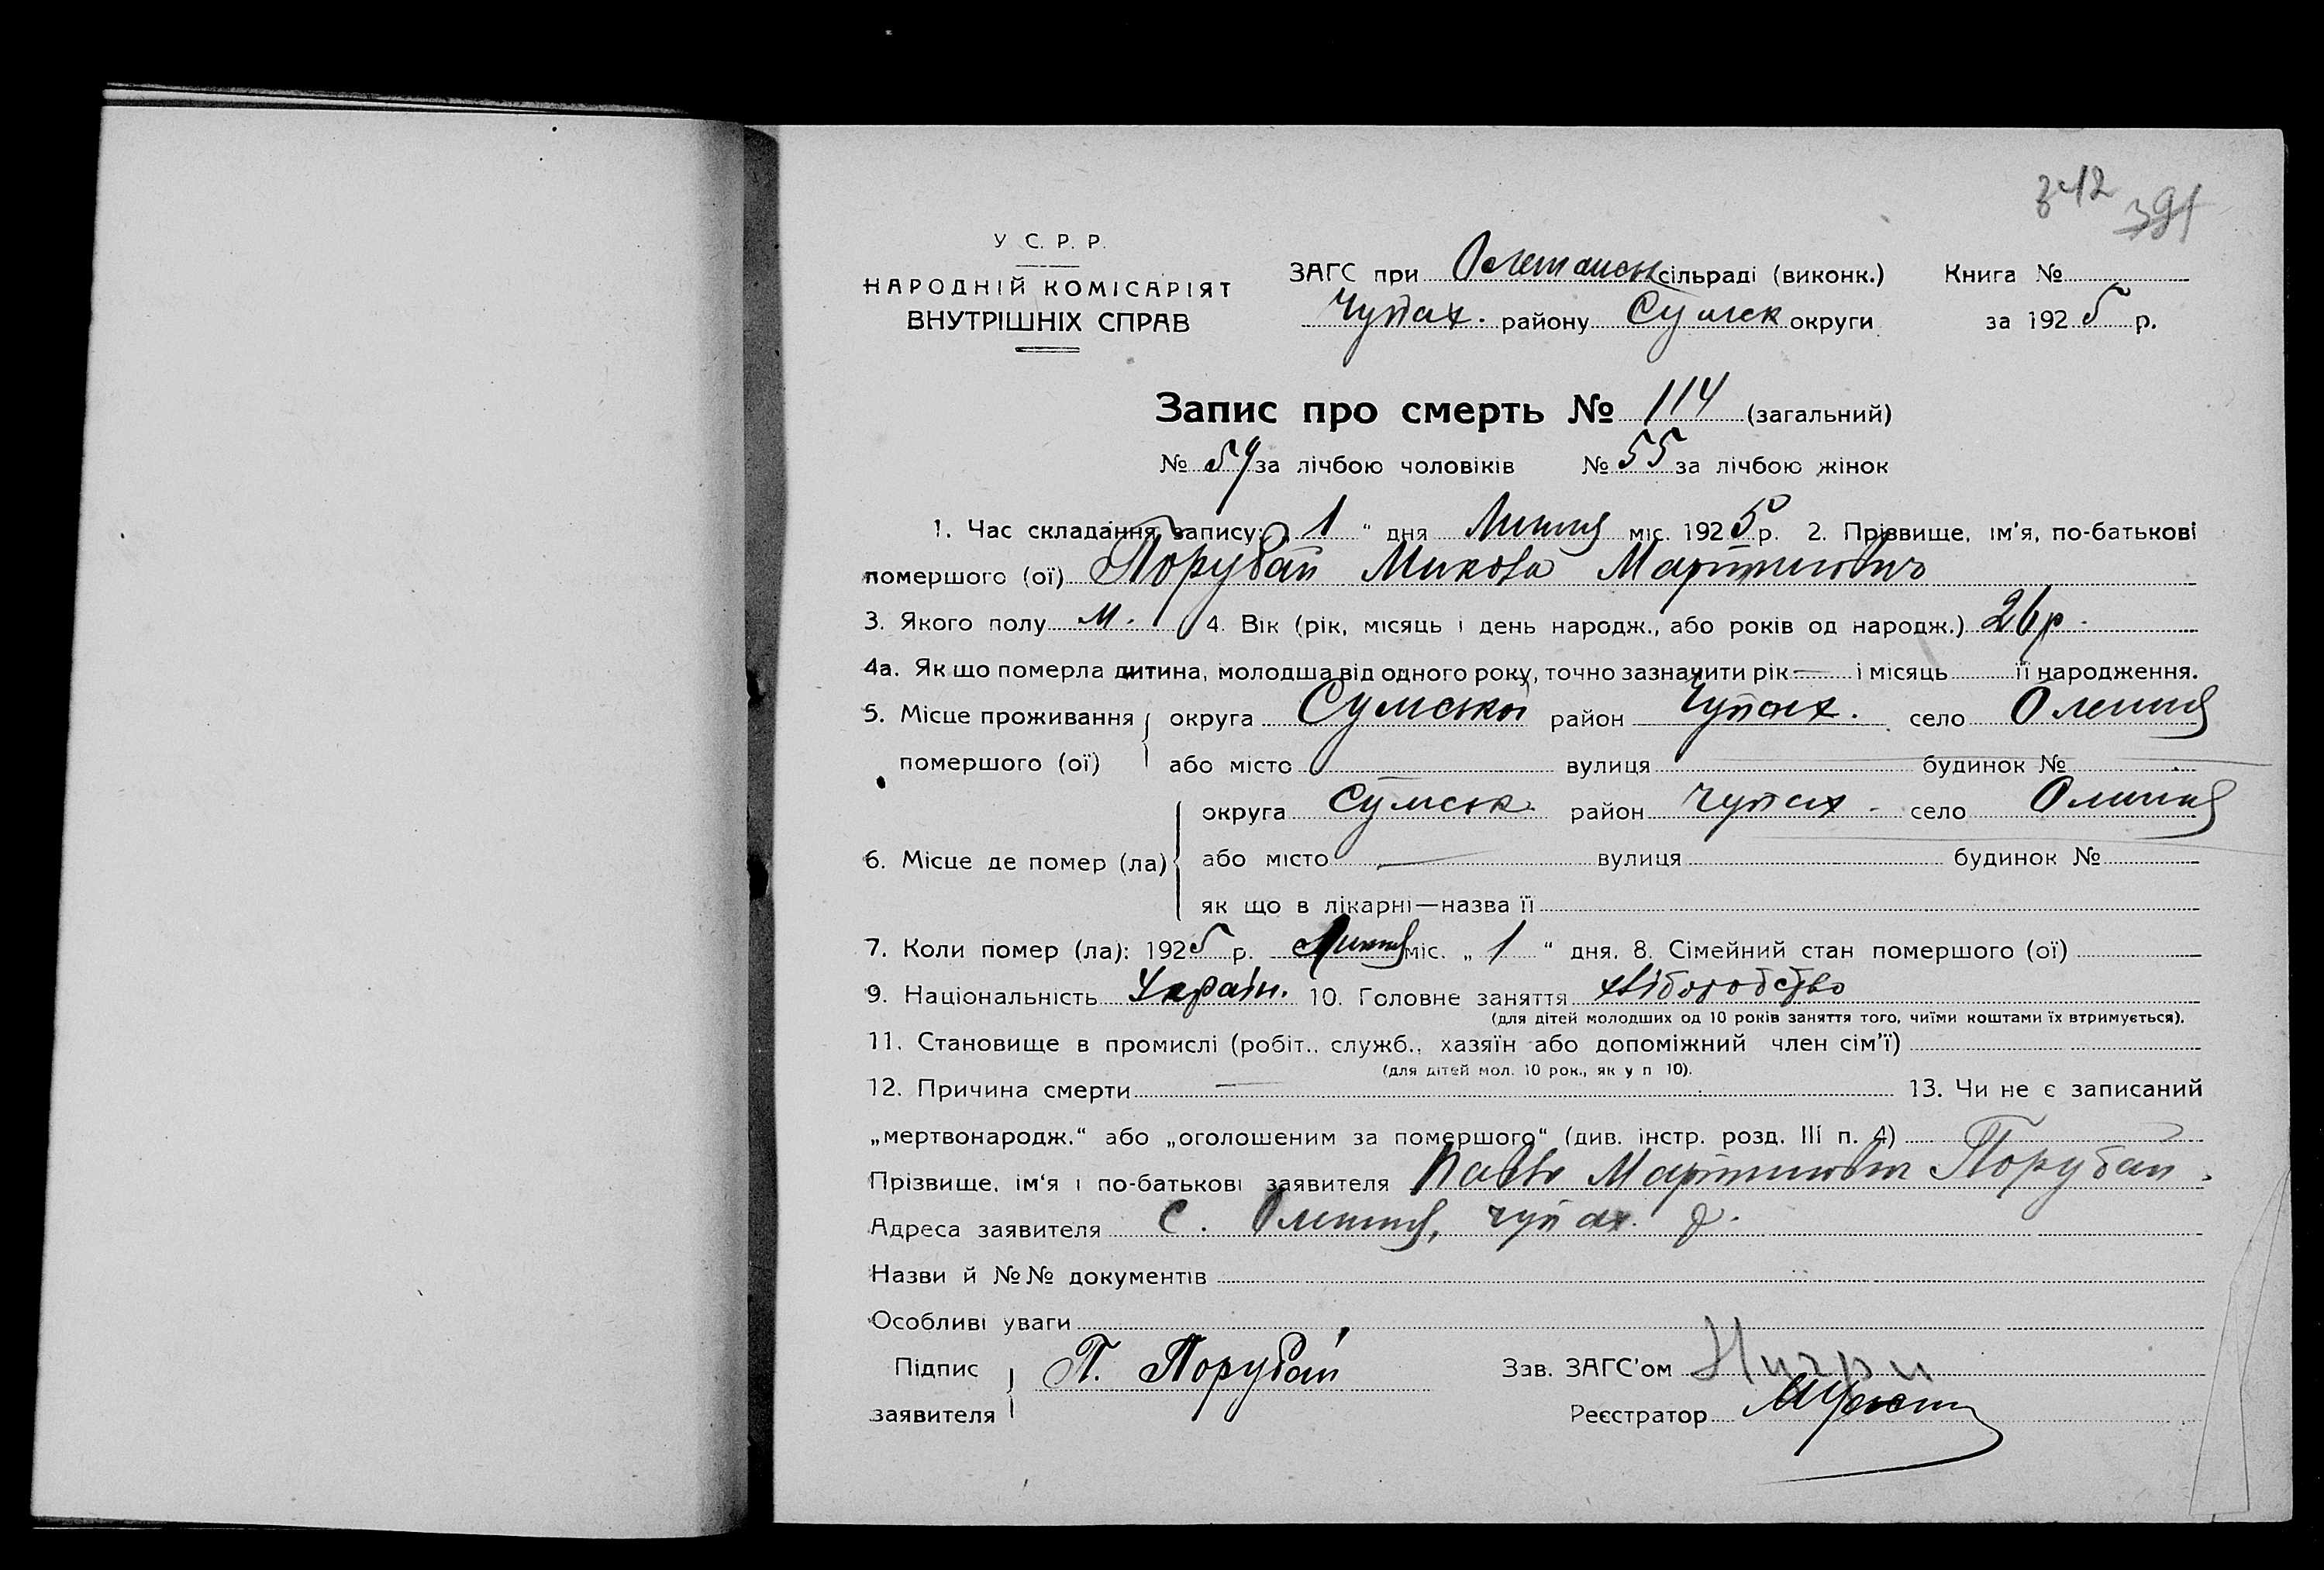 342 391
У С. Р. Р.
НАРОДНІЙ КОМІСАРІЯТ
ВНУТРІШНІХ СПРАВ
ЗАГС при сільраді (виконк.) Книга №
Чупах. району Сумск округи за 1925 р.
Запис про смерть № 114 (загальний)
№ 59 за лічбою чоловіків № 55 за лічбою жінок
1. Час складання запису: „ 1 “ дня Липня міс. 1925 р. 2. Прізвище, ім'я, по-батькові
помершого (ої) Порубай Микола Мартинович
3. Якого полу м. 4. Вік (рік, місяць і день народж., або років од народж.) 26 р.
4а. Як що померла дитина, молодша від одного року, точно зазначити рік — і місяць її народження.
5. Місце проживання округа Сумська район Чупах. село Олешня
помершого (ої) або місто вулиця будинок №
округа Сумськ. район Чупах. село Олешня
6. Місце де помер (ла) або місто — вулиця будинок №
як що в лікарні—назва її
7. Коли помер (ла): 1925 р. Липня міс. „ 1 “ дня. 8. Сімейний стан помершого (ої)
9. Національність Україн. 10. Головне заняття хліборобство
(для дітей молодших од 10 років заняття того, чиїми коштами їх втримується).
11. Становище в промислі (робіт., служб., хазяїн або допоміжний член сім'ї)
(для дітей мол. 10 рок., як у п 10).
12. Причина смерти — 13. Чи не є записаний
„мертвонародж.“ або „оголошеним за помершого“ (див. інстр. розд. III п. 4)
Прізвище, ім'я і по-батькові заявителя Павло Мартинович Порубай.
Адреса заявителя с. Олешня, Чупах. р.
Назви й №№ документів
Особливі уваги
Підпис
заявителя П. Порубай
Зав. ЗАГС'ом
Реєстратор